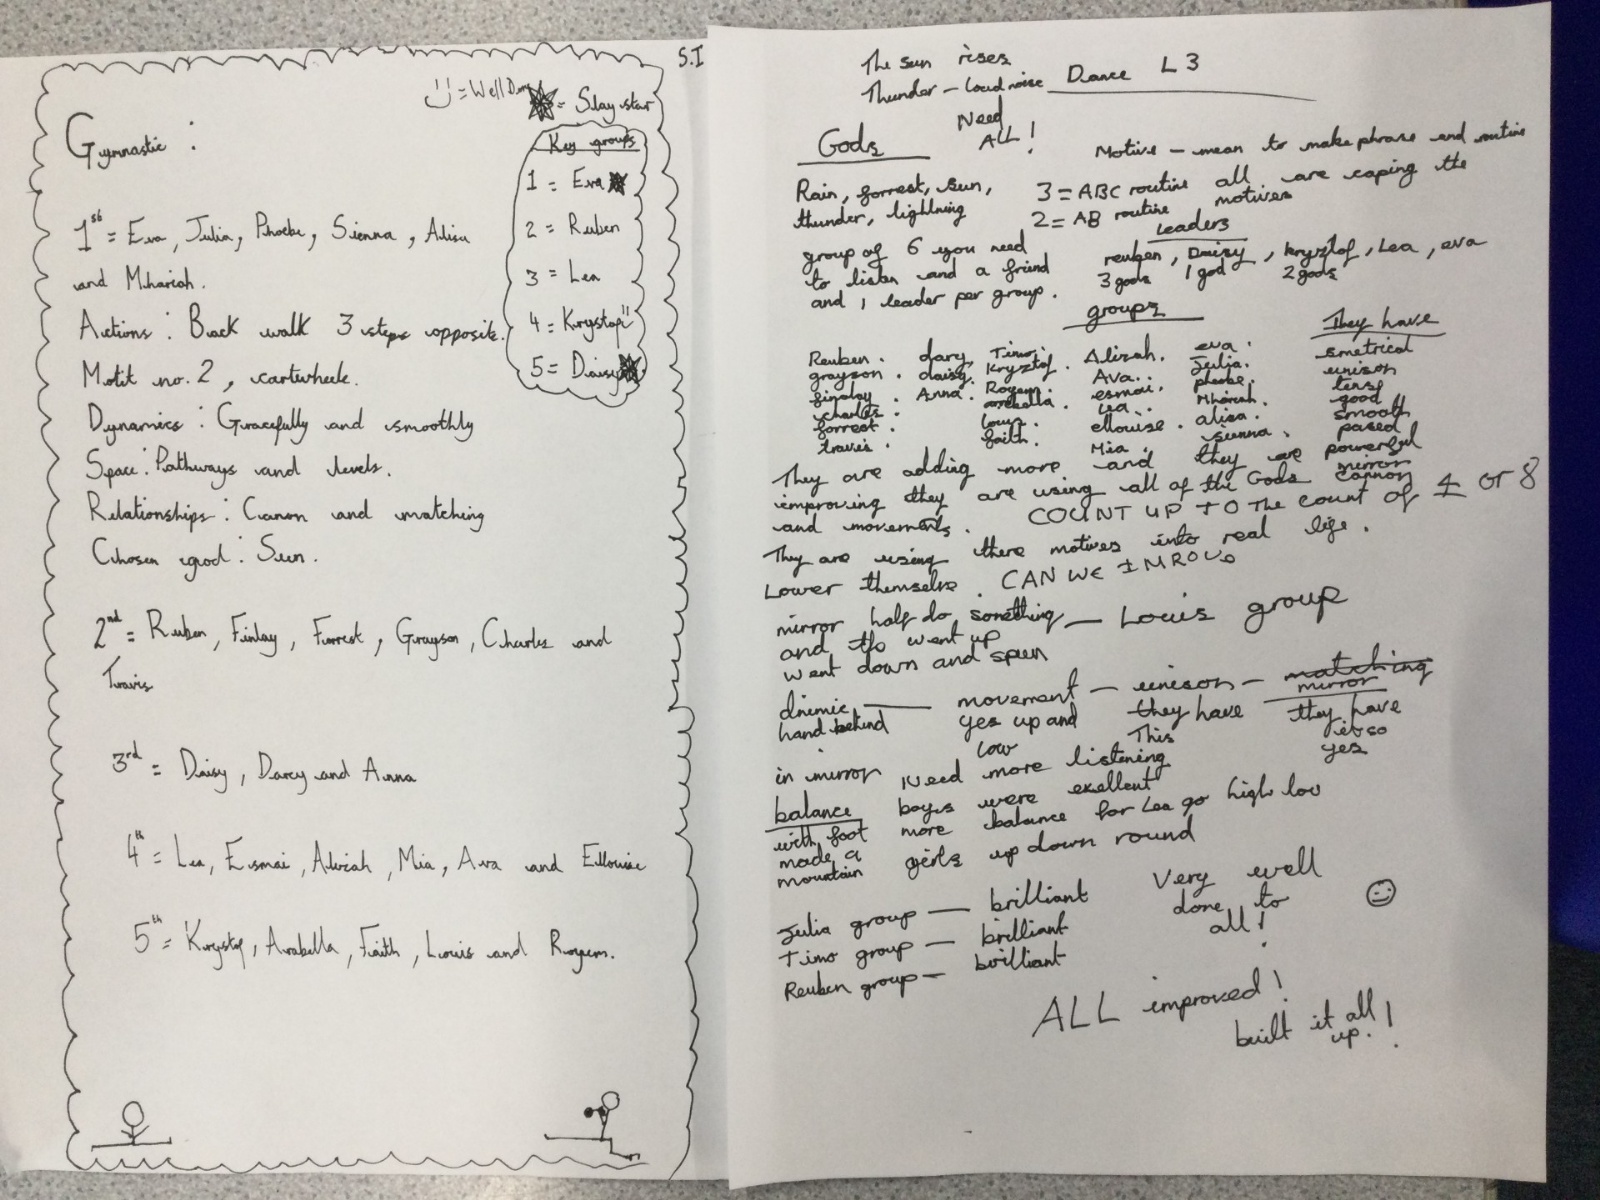 S.I
= Well Done
= Slay star
Gymnastic :
Key groups
1 = Eva
2 = Ruben
3 = Lea
4 = Krystof
5 = Daisy
1st = Eva, Julia, Phoebe, Sienna, Alisa
and Mhariah.
Actions : Back walk 3 steps opposite.
Motif no. 2, cartwheele.
Dynamics : Gracefully and smoothly
Space : Pathways and levels.
Relationships : Canon and matching
Chosen god : Sun.
2nd = Ruben, Finlay, Forrest, Grayson, Charles and
Travis
3rd = Daisy, Darcy and Anna
4th = Lea, Esmai, Alirah, Mia, Ava and Ellouise
5th = Krystof, Arabella, Faith, Louis and Royem.
The sun rises
Thunder - loud noise
Dance L3
Need
ALL!
Gods
Motive - mean to make phrase and routine
Rain, forrest, sun,
thunder, lightning
3 = ABC routine all are coping the
2 = AB routine motives
group of 6 you need
to listen and a friend
and 1 leader per group.
Leaders
reuben, Daisy, kryztof, Lea, eva
3 gods 1 god 2 gods
groups
They have
Reuben. darcy, Timo. Alirah. eva. smetrical
grayson. daisy. kryztof. Ava.. Julia. unison
finday. Anna. Royem. esmai. phoebe. tens
charles. arabella. Lea.. Mhariah. good
forrest. Louis. ellouise. alisa. smooth
travis. faith. Mia. sienna. pased
They are adding more and they are powerful
improving they are using all of the Gods mirror
and movements. cannon
COUNT UP TO The count of 4 or 8
They are using there motives into real life.
Lower themselve. CAN WE IMROVE
mirror half do something - Louis group
and tfo went up
went down and spun
dniemic - movement - unison - matching
mirror
hand behind yes up and they have they have
low This it so
yes
in mirror Need more listening
balance boys were exellent
with foot more balance for Lea go high low
made a girls up down round
mountain
Julia group - brilliant
Timo group - brilliant
Reuben group - brilliant
Very well
done to
all!
ALL improved!
built it all
up.!